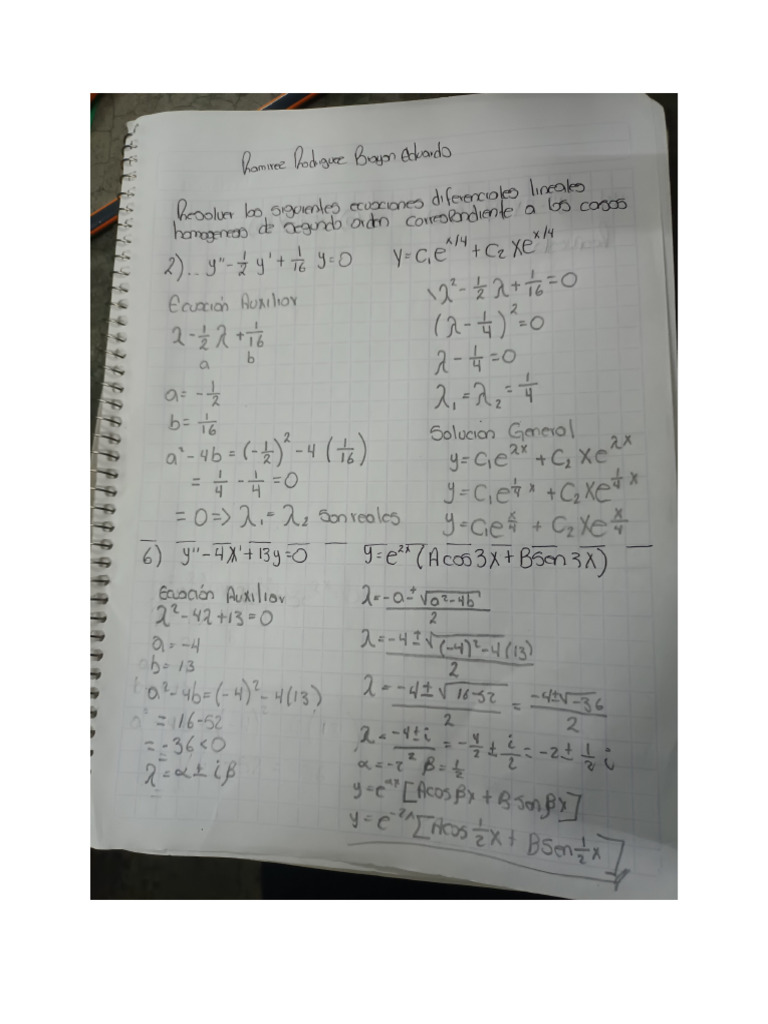 Ramirez Rodriguez Brayan Eduardo
Resolver las siguientes ecuaciones diferenciales lineales
homogeneas de segundo orden correspondiente a los casos
2).. y'' - 1/2 y' + 1/16 y = 0
y = C₁e^(x/4) + C₂ x e^(x/4)
Ecuación Auxiliar
λ - 1/2 λ + 1/16
a b
a = - 1/2
b = 1/16
a² - 4b = (-1/2)² - 4 (1/16)
= 1/4 - 1/4 = 0
= 0 => λ₁ = λ₂ son reales
λ² - 1/2 λ + 1/16 = 0
(λ - 1/4)² = 0
λ - 1/4 = 0
λ₁ = λ₂ = 1/4
Solución General
y = C₁e^(λx) + C₂ x e^(λx)
y = C₁e^(1/4 x) + C₂ x e^(1/4 x)
y = C₁e^(x/4) + C₂ x e^(x/4)
6) y'' - 4x' + 13y = 0
y = e^(2x) (A cos 3x + B sen 3x)
Ecuación Auxiliar
λ² - 4λ + 13 = 0
a = -4
b = 13
a² - 4b = (-4)² - 4(13)
= 16 - 52
= -36 < 0
λ = α ± iβ
λ = -a ± √(a² - 4b) / 2
λ = -4 ± √((-4)² - 4(13)) / 2
λ = -4 ± √(16 - 52) / 2 = -4 ± √-36 / 2
λ = -4 ± i / 2 = -4/2 ± i/2 = -2 ± 1/2 i
α = -2 β = 1/2
y = e^(αx) [A cos βx + B sen βx]
y = e^(-2x) [A cos 1/2 x + B sen 1/2 x]